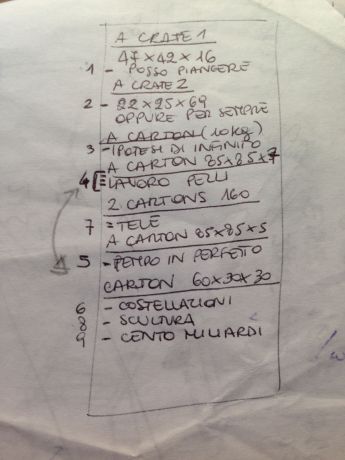 A CRATE 1
47 × 42 × 16
1 - POSSO PIANGERE
A CRATE 2
2 - 22 × 25 × 69
OPPURE PER SEMPRE
A CARTON (10kg)
3 - IPOTESI DI INFINITO
A CARTON 85×85×7
4 LAVORO PELLI
2 CARTONS 160
7 = TELE
A CARTON 85×85×5
5 - TEMPO IN PERFETTO
CARTON 60×30×30
6 - COSTELLAZIONI
8 - SCULTURA
9 - CENTO MILIARDI